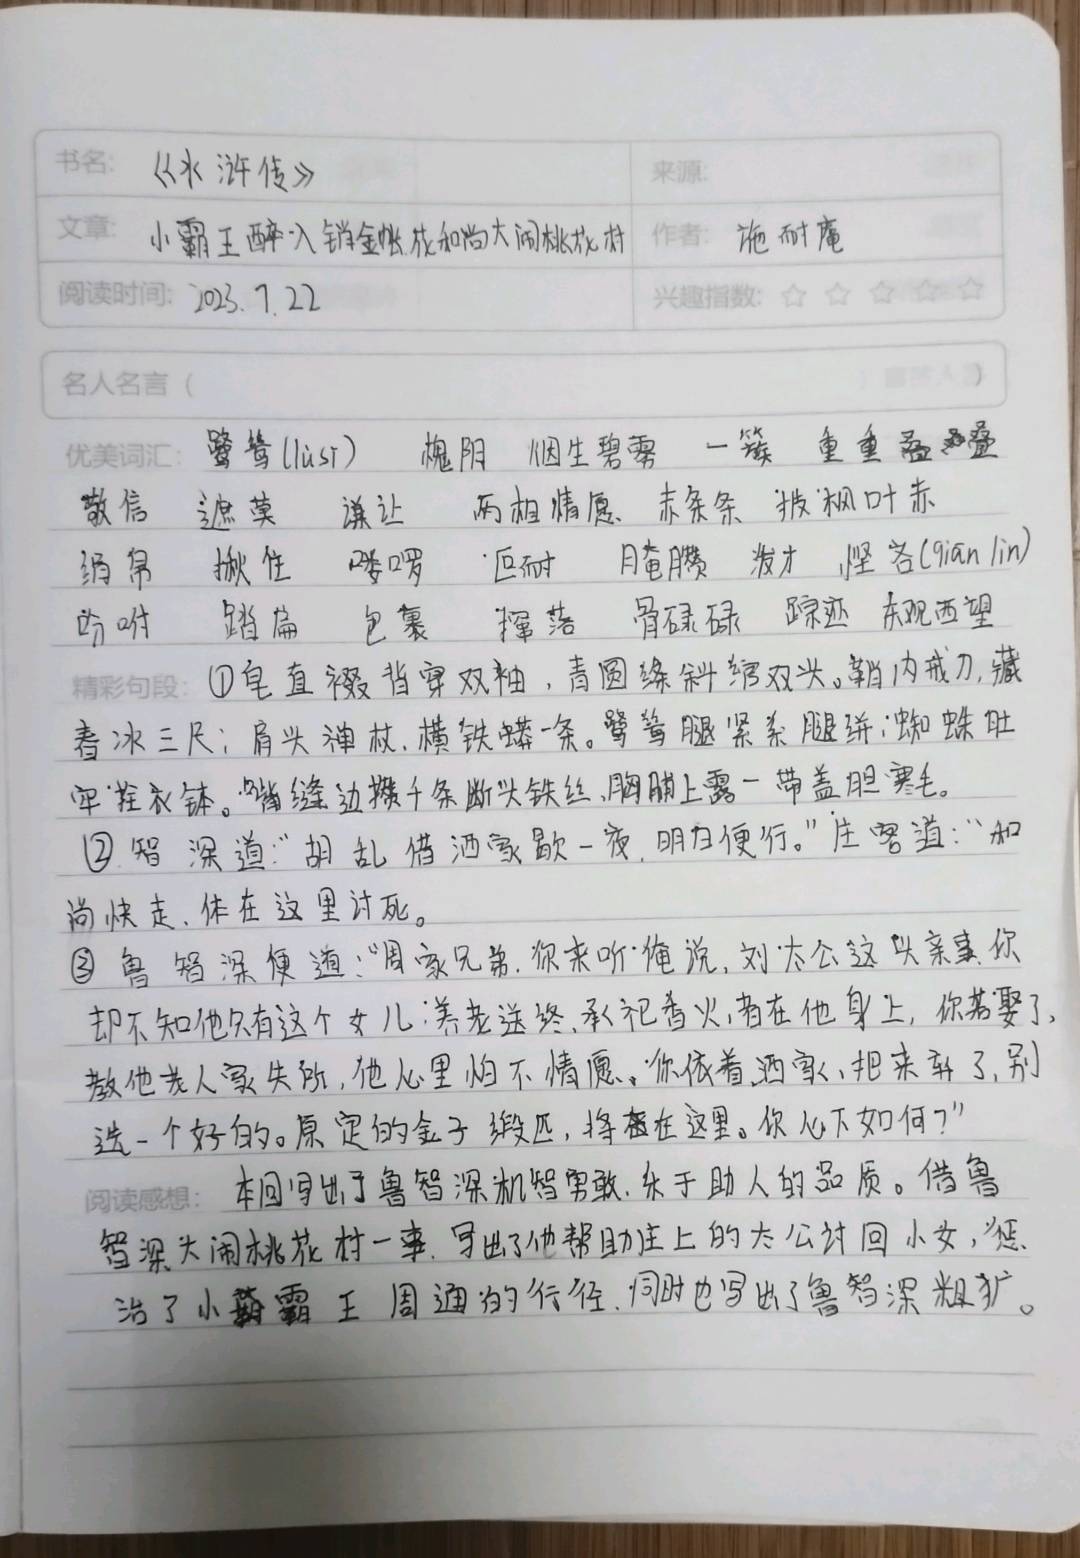 书名: 《水浒传》 来源:
文章: 小霸王醉入销金帐 花和尚大闹桃花村 作者: 施耐庵
阅读时间: 2023.7.22 兴趣指数: ☆ ☆ ☆ ☆ ☆
名人名言 ( )
优美词汇: 鹭鸶(lùsī) 槐阴 烟生碧雾 一簇 重重叠叠
敬信 遮莫 谦让 两相情愿 赤条条 披枫叶赤
绢帛 揪住 喽啰 叵耐 腌臜 泼才 悭吝(qian lin)
吩咐 踏扁 包裹 撺落 骨碌碌 踪迹 东观西望
精彩句段: ①皂直裰背穿双袖,青圆绦斜绾双头。鞘内戒刀,藏
春冰三尺;肩头禅杖,横铁蟒一条。鹭鸶腿紧系腿絣;蜘蛛肚
牢拴衣钵。嘴缝边攒千条断头铁丝,胸脯上露一带盖胆寒毛。
②智深道:“胡乱借洒家歇一夜,明日便行。”庄客道:“和
尚快走,休在这里讨死。
③鲁智深便道:“周家兄弟,你来听俺说,刘太公这头亲事,你
却不知他只有这个女儿,养老送终,承祀香火,都在他身上,你若娶了,
教他老人家失所,他心里怕不情愿。你依着洒家,把来弃了,别
选一个好的。原定的金子缎匹,将在这里。你心下如何?”
阅读感想: 本回写出了鲁智深机智勇敢,乐于助人的品质。借鲁
智深大闹桃花村一事,写出了他帮助庄上的太公讨回小女,惩
治了小霸王周通的行径,同时也写出了鲁智深粗犷。